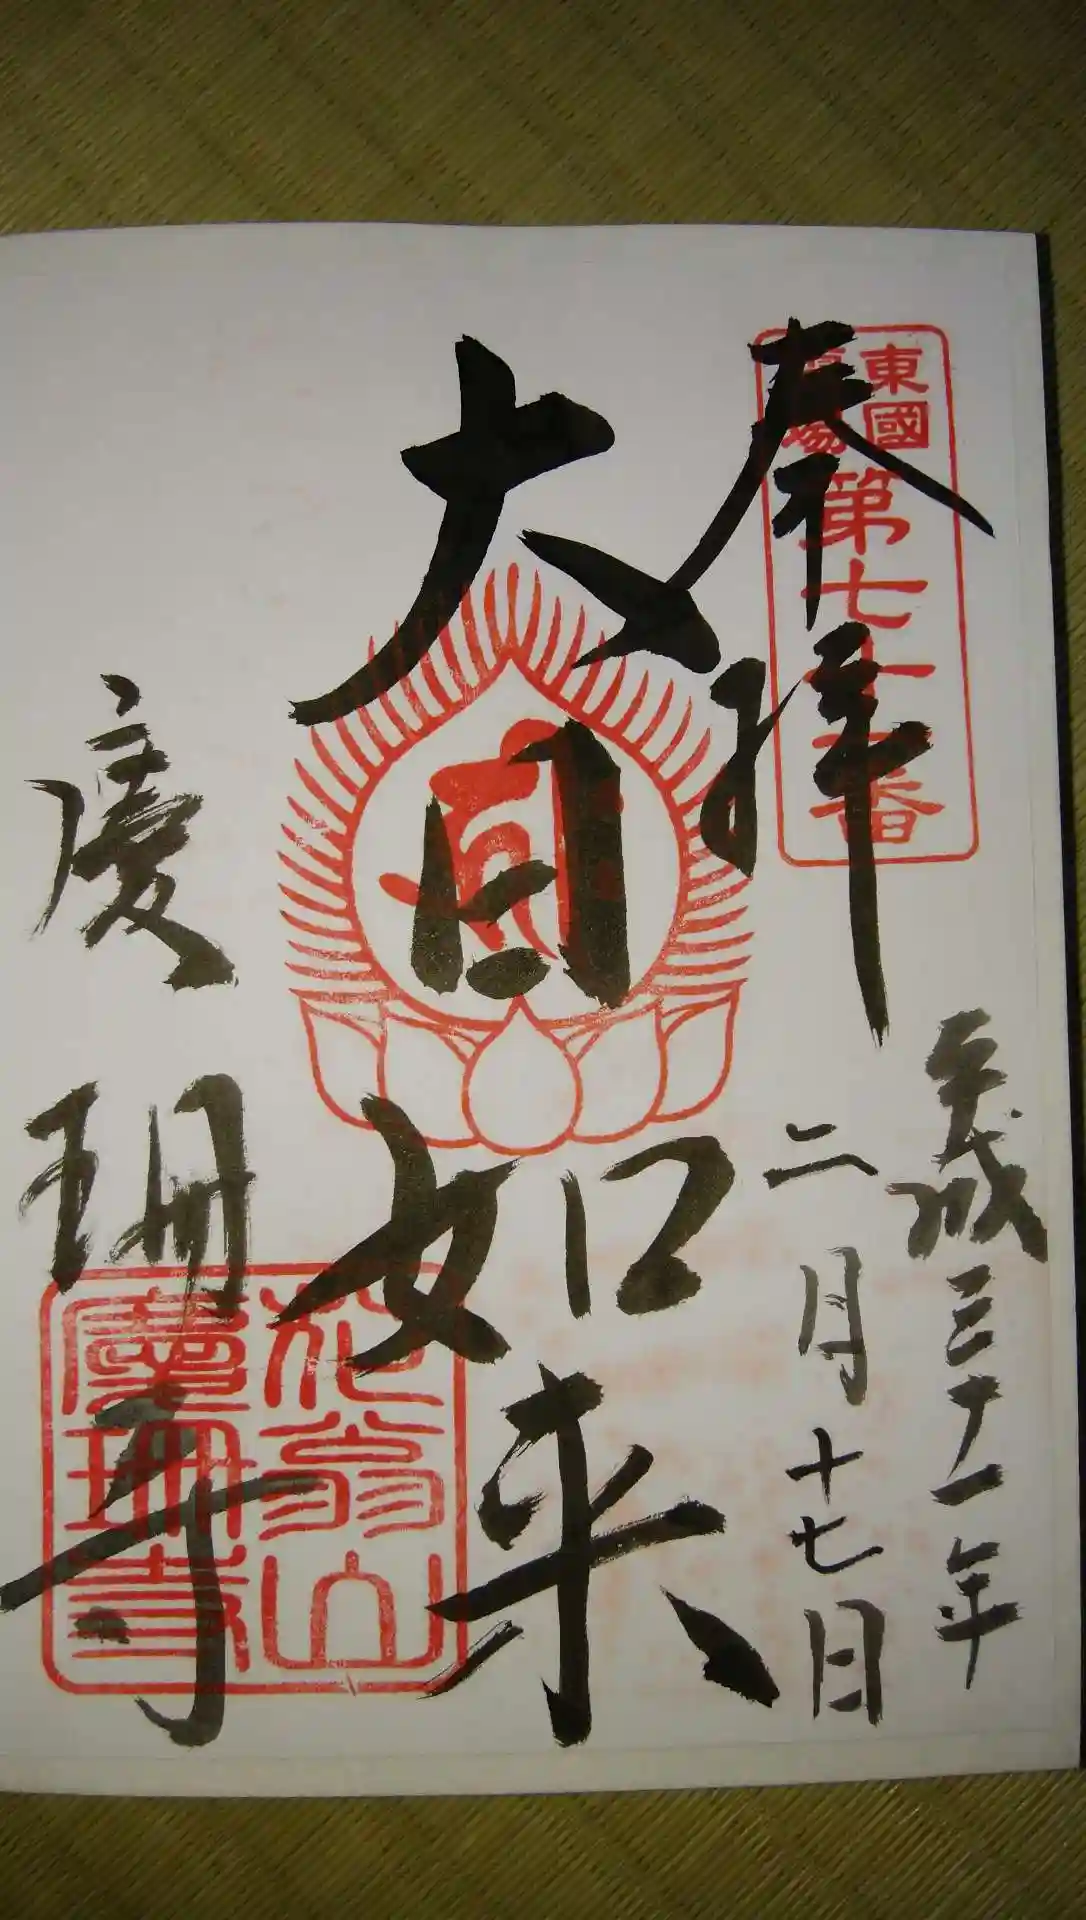 奉拝
東國
霊場
第七十二番
平成三十一年
二月十七日
大日如来
慶珊寺
花翁山
慶珊寺